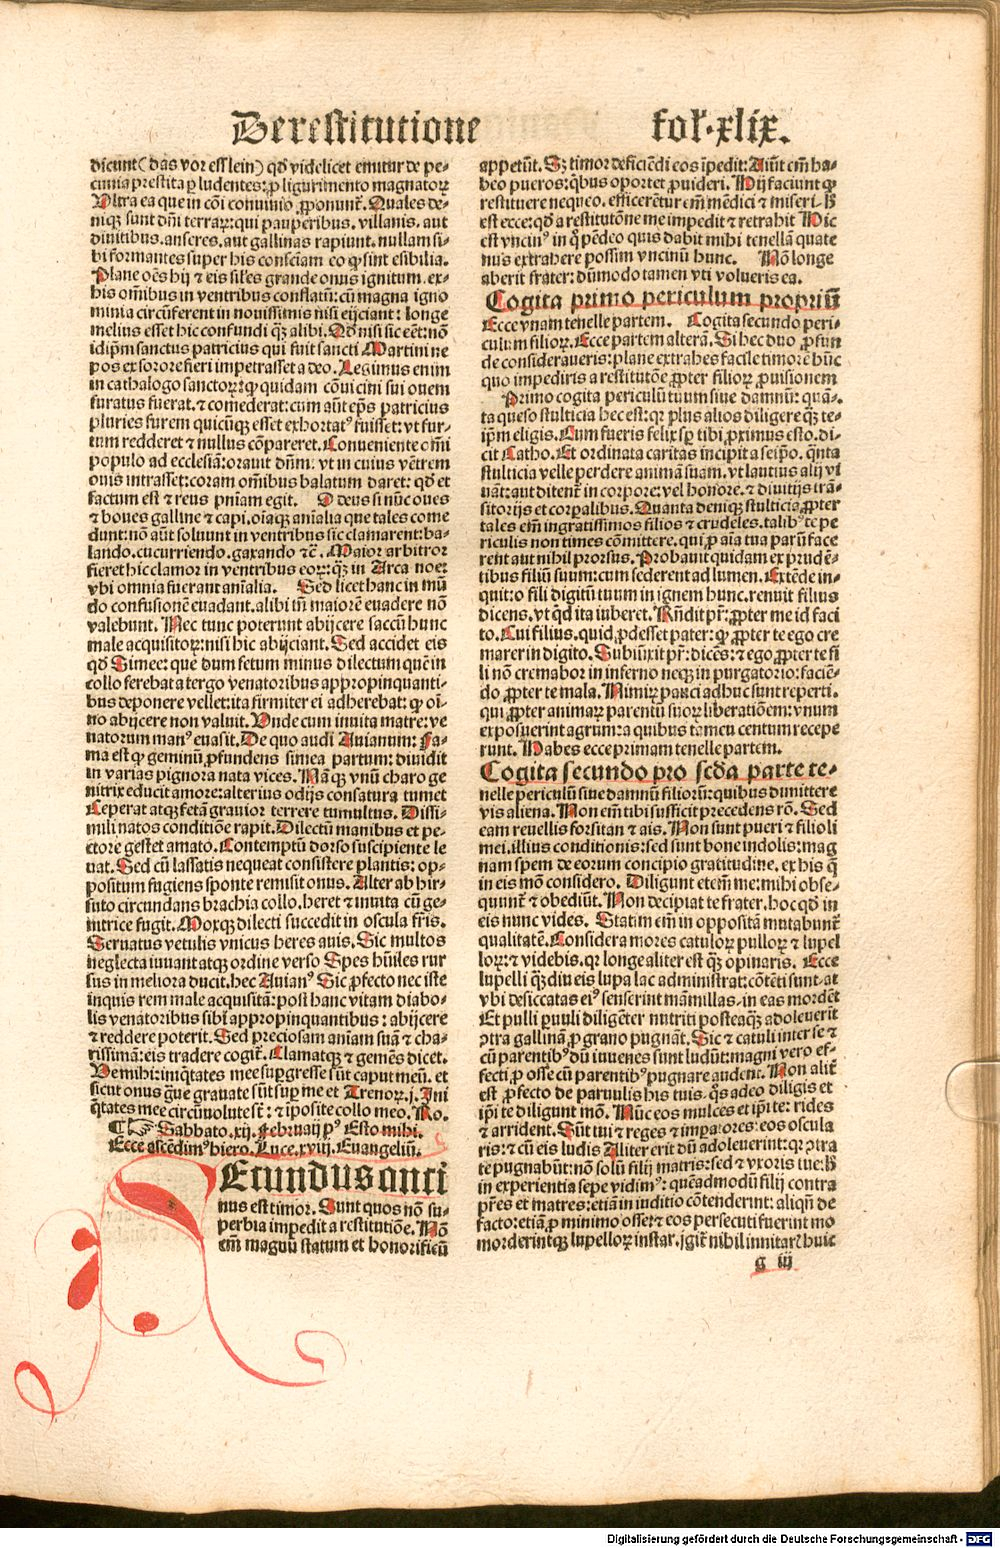 De restitutione fol. xlix.
dicunt (das vor esslein) qđ videlicet emitur de pe-
cunia prestita ꝑ ludentes: ꝓ liguritmento magnatoꝝ
Ultra ea que in cōi conuiuio ꝓponunt̄. Quales de-
niqꝫ sunt dn̄i terraꝝ: qui pauperibus. villanis. aut
diuitibus. anseres. aut gallinas rapiunt. nullam si-
bi formantes super his consciam eo ꝙ sint esibilia.
Plane oēs hij ⁊ eis siłes grande onus ignitum. ex-
his om̄ibus in ventribus conflatū: cū magna igno
minia circūferent in nouissimis nisi eijciant: longe
melius esset hic confundi qꝫ alibi. Qđ nisi sic eēt: nō
idip̄m sanctus patricius qui fuit sancti Martini ne
pos ex sorore fieri impetrasset a deo. Legimus enim
in cathalogo sanctoꝝ: ꝙ quidam cōuicini sui ouem
furatus fuerat. ⁊ comederat: cum aūt ep̄s patricius
pluries furem quicūqꝫ esset exhortatꝰ fuisset: vt fur-
tum redderet ⁊ nullus cōpareret. Conueniente om̄i
populo ad ecclesiā: orauit dn̄m. vt in cuius vētrem
ouis intrasset: coram om̄ibus balatum daret: qđ et
factum est ⁊ reus pn̄iam egit. O deus si nūc oues
⁊ boues galline ⁊ capi. oīaqꝫ aīalia que tales come
dunt: nō aūt soluunt in ventribus sic clamarent: ba-
lando. cucurriendo. gaxando ⁊c̄. Maior arbitror
fieret hic clamor in ventribus eoꝝ: qꝫ in Arca noe:
vbi omnia fuerant aīalia. Sed licet hanc in mū
do confusionē euadant. alibi tn̄ maiorē euadere nō
valebunt. Nec tunc poterunt abijcere saccū hunc
male acquisitoꝝ: nisi hic abijciant. Sed accidet eis
qđ Simee: que dum fetum minus dilectum quē in
collo ferebat a tergo venatoribus appropinquanti-
bus deponere vellet: ita firmiter ei adherebat: ꝙ oī-
no abijcere non valuit. Unde cum inuita matre: ve
natorum manꝰ euasit. De quo audi Auianum: Fa-
ma est ꝙ geminū ꝓfundens simea partum: diuidit
in varias pignora nata vices. Nāqꝫ vnū charo ge
nitrix educit amore: alterius odijs consatura tumet
Ceperat atqꝫ fetā grauior terrere tumultus. Dissi-
mili natos conditiōe rapit. Dilectū manibus et pe-
ctore gestet amato. Contemptū dorso suscipiente le
uat. Sed cū lassatis nequeat consistere plantis: op-
positum fugiens sponte remisit onus. Alter ab hir-
suto circundans brachia collo. heret ⁊ inuita cū ge-
nitrice fugit. Moxqꝫ dilecti succedit in oscula fr̄is.
Seruatus vetulis vnicus heres auis. Sic multos
neglecta iuuant atqꝫ ordine verso Spes hūiles rur
sus in meliora ducit. hec Auianꝰ Sic ꝓfecto nec iste
inquis rem male acquisitā: post hanc vitam diabo-
lis venatoribus sibi appropinquantibus: abijcere
⁊ reddere poterit. Sed preciosam aniam suā ⁊ cha-
rissimā: eis tradere cogit̄. Clamatqꝫ ⁊ gemēs dicet.
Ve mihi: iniq̄tates mee supgresse sūt caput meū. et
sicut onus graue grauate sūt suꝑ me et Trenoꝝ. j. Ini
q̄tates mee circūuolute st̄: ⁊ iposite collo meo. Ro.
Sabbato. xij. Februarij pꝰ Esto mihi.
Ecce ascēdimꝰ hiero. Luce. xviij. Euangeliū.
Ecundus anci
nus est timor. Sunt quos nō su-
perbia impedit a restitutiōe. Nō
em̄ magnū statum et honorificū
appetūt. Sꝫ timor deficiēdi eos īpedit: Aiūt em̄ ha-
beo pueros: qͥbus oportet ꝓuideri. Hij faciunt ꝙ
restituere nequeo. efficerētur em̄ mēdici ⁊ miseri. H̄
est ecce: qđ a restitutōne me impedit ⁊ retrahit Hic
est vncinꝰ in q̊ pēdeo quis dabit mihi tenellā qua te
nus extrahere possim vncinū hunc. Nō longe
aberit frater: dūmodo tamen vti volueris ea.
Cogita primo periculum propriū
Ecce vnam tenelle partem. Cogita secundo peri-
culum filioꝝ. Ecce partem alterā. Si hec duo ꝓfun
de consideraueris: plane extrahes facile timorē hūc
quo impediris a restitutōe ꝓpter filioꝝ ꝓuisionem
Primo cogita periculū tuum siue damnū: quā-
ta queso stulticia hec est: qꝛ plus alios diligere qꝫ te-
ip̄m eligis. Cum fueris felix sꝑ tibi ꝓximus esto. di-
cit Catho. Et ordinata caritas incipit a seip̄o. qͣnta
stulticia velle perdere animā suam. vt lautius alij vi
uāt: aut ditent̄ in corpore: vel honore. ⁊ diuitijs trā-
sitorijs et corꝑalibus. Quanta deniqꝫ stulticia ꝓpter
tales em̄ ingratissimos filios ⁊ crudeles. talibꝰ te pe
riculis non times cōmittere. qui ꝓ aīa tua parū face
rent aut nihil prorsus. Probauit quidam ex prudē-
tibus filiū suum: cum sederent ad lumen. Extēde in-
quit: o fili digitū tuum in ignem hunc. renuit filius
dicens. vt qđ ita iuberet. Rn̄dit pr̄: ꝓpter me id faci
to. Cui filius. quid ꝓdesset pater: ꝙ ꝓpter te ego cre
marer in digito. Subiūxit pr̄: dicēs: ⁊ ego ꝓpter te fi
li nō cremabor in inferno neqꝫ in purgatorio: faciē-
do ꝓpter te mala. Nimiꝝ pauci adhuc sunt reperti.
qui ꝓpter animaꝝ parentū suoꝝ liberatiōem: vnum
exposuerint agrum: a quibus tamen centum recepe
runt. Habes ecce primam tenelle partem.
Cogita secundo pro scđa parte te-
nelle periculū siue damnū filioꝝ: quibus dimittere
vis aliena. Non em̄ tibi sufficit precedens rō. Sed
eam reuellis forsitan ⁊ ais. Non sunt pueri ⁊ filioli
mei. illius conditionis: sed sunt bone indolis: mag
nam spem de eorum concipio gratitudine. ex his q̄
in eis mō considero. Diligunt etem̄ me: mihi obse-
quunt̄ ⁊ obediūt. Non decipiat te frater. hoc qđ in
eis nunc vides. Statim em̄ in oppositā mutabunt̄
qualitatē. Considera mores catuloꝝ pulloꝝ ⁊ lupel
loꝝ: ⁊ videbis. qꝛ longe aliter est qꝫ opinaris. Ecce
lupelli qꝫdiu eis lupa lac administrat: cōtēti sunt. at
vbi desiccatas eiꝰ senserint māmillas. in eas mordēt
Et pulli ꝑuuli diligēter nutriti posteaqꝫ adoleuerit
ↄtra gallinā ꝓ grano pugnāt. Sic ⁊ catuli inter se ⁊
cū parentibꝰ dū iuuenes sunt ludūt: magni vero ef-
fecti ꝓ osse cū parentibꝰ pugnare audent. Non alit̄
est ꝓfecto de paruulis his tuis. q̊s adeo diligis et
ip̄i te diligunt mō. Nūc eos mulces et ip̄i te: rides
⁊ arrident. Sūt tui ⁊ reges ⁊ impatores: eos oscula
ris: ⁊ cū eis ludis Aliter erit dū adoleuerint: qꝛ ↄtra
te pugnabūt: nō solū filij matris: sed ⁊ vxoris tue. H̄
in experientia sepe vidimꝰ: quēadmodū filij contra
pr̄es et matres: etiā in iuditio cōtenderint: aliqn̄ de
facto: etiā ꝓ minimo osse: ⁊ eos persecuti fuerint mo
morderintqꝫ lupelloꝝ instar. Igit̄ nihil innitaris huic
g iij
Digitalisierung gefördert durch die Deutsche Forschungsgemeinschaft - DFG